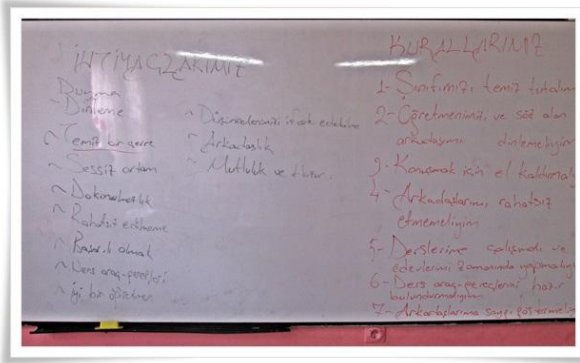 İHTİYAÇLARIMIZ
Duyma
~ Dinleme
~ Temiz bir çevre
~ Sessiz ortam
~ Dokunulmazlık
~ Rahatsız edilmeme
~ Başarılı olmak
~ Ders araç-gereçleri
~ İyi bir öğretmen
~ Düşüncelerimizi ifade edebilme
~ Arkadaşlık
~ Mutluluk ve Huzur.
KURALLARIMIZ
1- Sınıfımızı temiz tutalım
2- Öğretmenimi, ve söz alan
arkadaşımı dinlemeliyim
3- Konuşmak için el kaldırmalı
4- Arkadaşlarımı rahatsız
etmemeliyim
5- Derslerime çalışmalı ve
ödevlerimi zamanında yapmalıyı
6- Ders araç-gereçlerini hazır
bulundurmalıyım
7- Arkadaşlarıma saygı göstermeliy